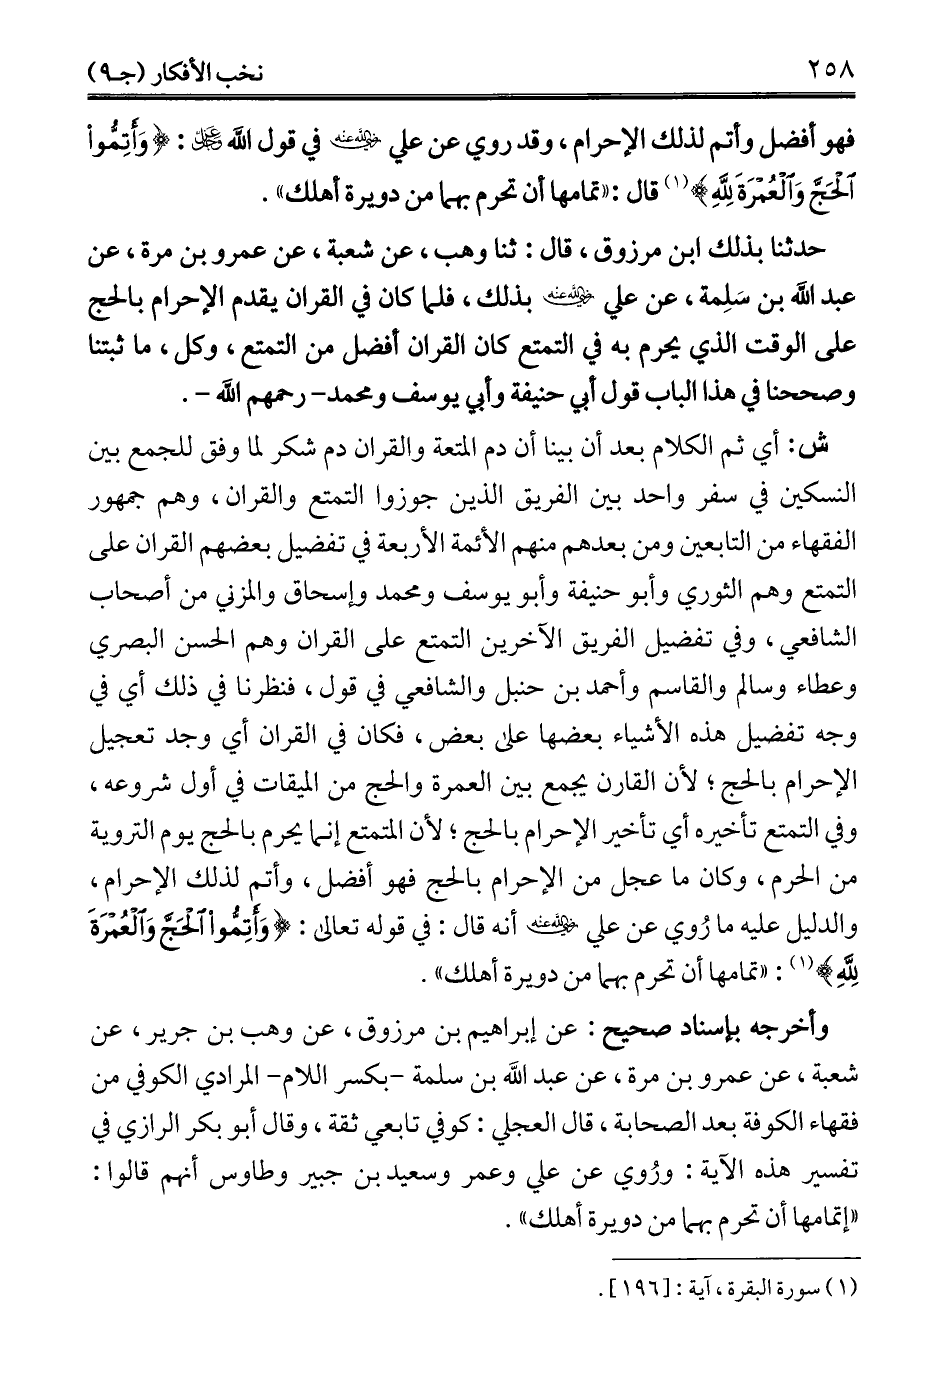 ٢٥٨
نخب الأفكار (جـ٩)
فهو أفضل وأتم لذلك الإحرام ، وقد روي عن علي رضي الله عنه في قول الله ﷻ : ﴿ وَأَتِمُّوا۟
ٱلْحَجَّ وَٱلْعُمْرَةَ لِلَّهِ ﴾(١) قال : «تمامها أن تحرم بهما من دويرة أهلك» .
حدثنا بذلك ابن مرزوق ، قال : ثنا وهب ، عن شعبة ، عن عمرو بن مرة ، عن
عبد الله بن سَلِمة ، عن علي رضي الله عنه بذلك ، فلما كان في القران يقدم الإحرام بالحج
على الوقت الذي يحرم به في التمتع كان القران أفضل من التمتع ، وكل ، ما ثبتنا
وصححنا في هذا الباب قول أبي حنيفة وأبي يوسف ومحمد- رحمهم الله - .
ش: أي ثم الكلام بعد أن بينا أن دم المتعة والقران دم شكر لما وفق للجمع بين
النسكين في سفر واحد بين الفريق الذين جوزوا التمتع والقران ، وهم جمهور
الفقهاء من التابعين ومن بعدهم منهم الأئمة الأربعة في تفضيل بعضهم القران على
التمتع وهم الثوري وأبو حنيفة وأبو يوسف ومحمد وإسحاق والمزني من أصحاب
الشافعي ، وفي تفضيل الفريق الآخرين التمتع على القران وهم الحسن البصري
وعطاء وسالم والقاسم وأحمد بن حنبل والشافعي في قول ، فنظرنا في ذلك أي في
وجه تفضيل هذه الأشياء بعضها على بعض ، فكان في القران أي وجد تعجيل
الإحرام بالحج ؛ لأن القارن يجمع بين العمرة والحج من الميقات في أول شروعه ،
وفي التمتع تأخيره أي تأخير الإحرام بالحج ؛ لأن المتمتع إنما يحرم بالحج يوم التروية
من الحرم ، وكان ما عجل من الإحرام بالحج فهو أفضل ، وأتم لذلك الإحرام ،
والدليل عليه ما رُوي عن علي رضي الله عنه أنه قال : في قوله تعالى : ﴿ وَأَتِمُّوا۟ ٱلْحَجَّ وَٱلْعُمْرَةَ
لِلَّهِ ﴾(١) : «تمامها أن تحرم بهما من دويرة أهلك» .
وأخرجه بإسناد صحيح : عن إبراهيم بن مرزوق ، عن وهب بن جرير ، عن
شعبة ، عن عمرو بن مرة ، عن عبد الله بن سلمة -بكسر اللام- المرادي الكوفي من
فقهاء الكوفة بعد الصحابة ، قال العجلي : كوفي تابعي ثقة ، وقال أبو بكر الرازي في
تفسير هذه الآية : ورُوي عن علي وعمر وسعيد بن جبير وطاوس أنهم قالوا :
«إتمامها أن تحرم بهما من دويرة أهلك» .
(١) سورة البقرة ، آية : [١٩٦] .